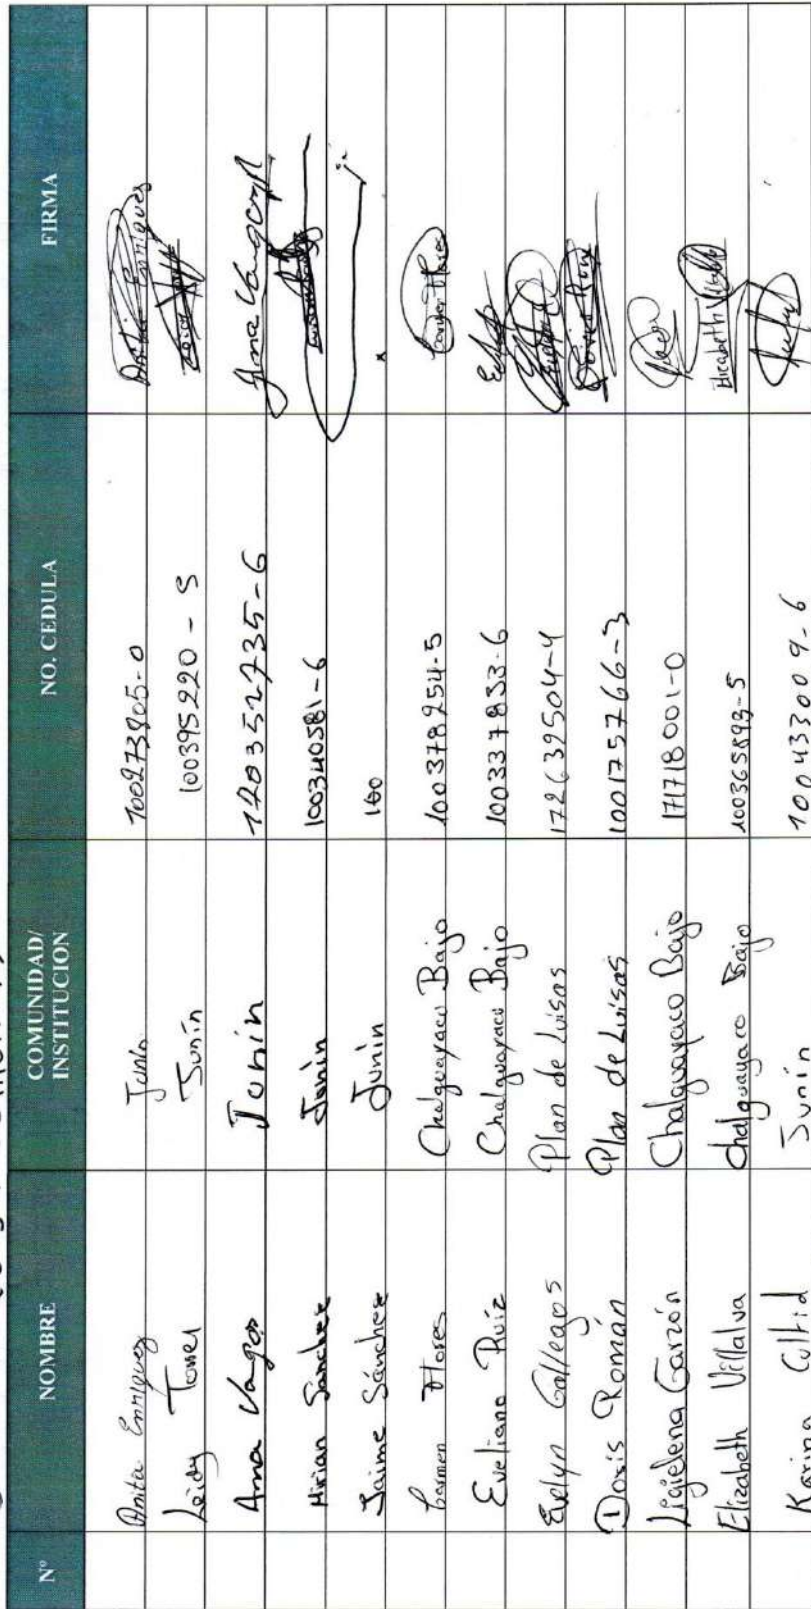 Nº NOMBRE COMUNIDAD/ INSTITUCION NO. CEDULA FIRMA
Anita Enriquez Junín 100273805-0 Anita Enriquez
Leidy Torres Junín 100395220-5
Ana Vargas Junín 170352735-6 Ana Vargas
Mirian Sanchez Junín 100340581-6
Jaime Sánchez Junín 100
Carmen Flores Chalguayacu Bajo 100378254-5 Carmen Flores
Eveliana Ruiz Chalguayacu Bajo 100337833-6
Evelyn Gallegos Plan de Luisas 172639504-4
Doris Román Plan de Luisas 100175766-3
Ligielena Garzón Chalguayaco Bajo 171718001-0
Elizabeth Villalva Chalguayaco Bajo 100365893-5 Elizabeth
Karina Cultid Junín 100433009-6